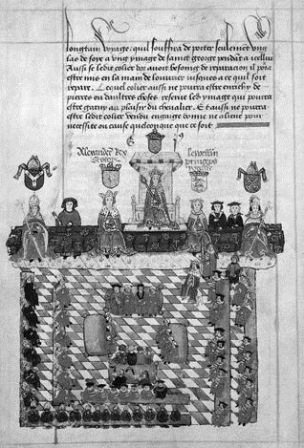 longtain voyage, quil souffira de porter seulement ung
las de soye a ung ymage de sainct george pendu a icelluy
Aussi se ledit colier doit avoit besoing de reparation il pora
estre mis en la main de louurier jusques a ce quil soit
repare. Lequel colier aussi ne pourra estre enrichy de
pierres ou daultres choses reserue led ymage qui pourra
estre garny au plaisir du chevalier. Et aussi ne pourra
estre ledit colier vendu engaige donne ne aliene pour
necessite ou cause quelconque que ce soit
Alexander Rex
Scocie
Lewellin
princeps